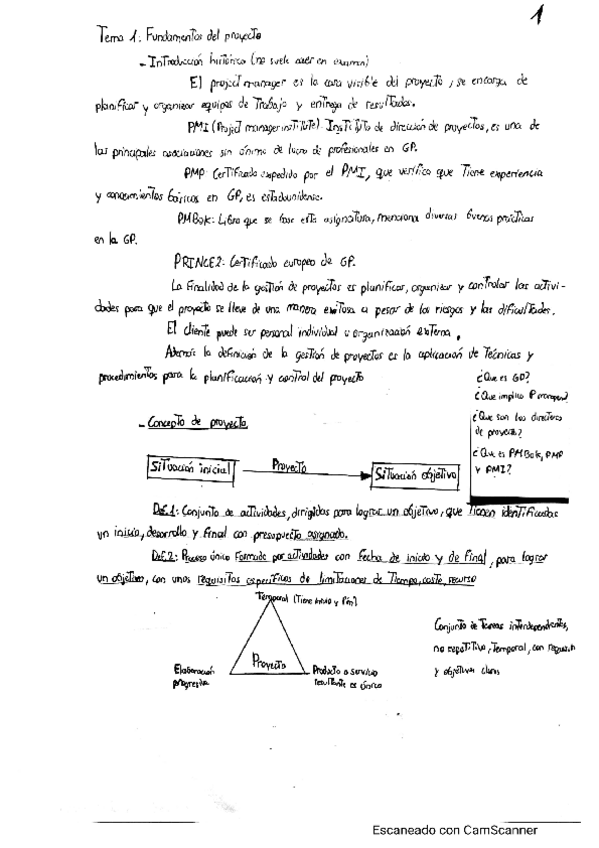 1
Tema 1: Fundamentos del proyecto
- Introducción histórica (no suele caer en examen)
El project manager es la cara visible del proyecto, se encarga de
planificar y organizar equipos de Trabajo y entrega de resultados.
PMI (Project manager institute): Instituto de dirección de proyectos, es una de
las principales asociaciones sin ánimo de lucro de profesionales en GP.
PMP: Certificado expedido por el PMI, que verifica que Tiene experiencia
y conocimientos teóricos en GP, es estadounidense.
PMBok: Libro que se base esta asignatura, menciona diversas buenas prácticas
en la GP.
PRINCE2: Certificado europeo de GP.
La finalidad de la gestión de proyectos es planificar, organizar y controlar las activi-
dades para que el proyecto se lleve de una manera exitosa a pesar de los riesgos y las dificultades.
El cliente puede ser personal individual u organización externa.
Además la definición de la gestión de proyectos es la aplicación de Técnicas y
procedimientos para la planificación y control del proyecto
¿Que es GP?
¿Que implica P manager?
¿Que son los directores
de proyecto?
¿Que es PMBok, PMP
y PMI?
- Concepto de proyecto
Situación inicial
Proyecto
Situación objetivo
Def.1: Conjunto de actividades, dirigidas para lograr un objetivo, que Tienen identificadas
un inicio, desarrollo y final con presupuesto asignado.
Def.2: Proceso único Formado por actividades con fecha de inicio y de final, para lograr
un objetivo, con unos requisitos específicos de limitaciones de Tiempo, coste, recurso
Temporal (Tiene inicio y fin)
Proyecto
Elaboración
progresiva
Producto o servicio
resultante es único
Conjunto de Tareas interdependientes,
no repetitivo, Temporal, con
y objetivos claros
Escaneado con CamScanner